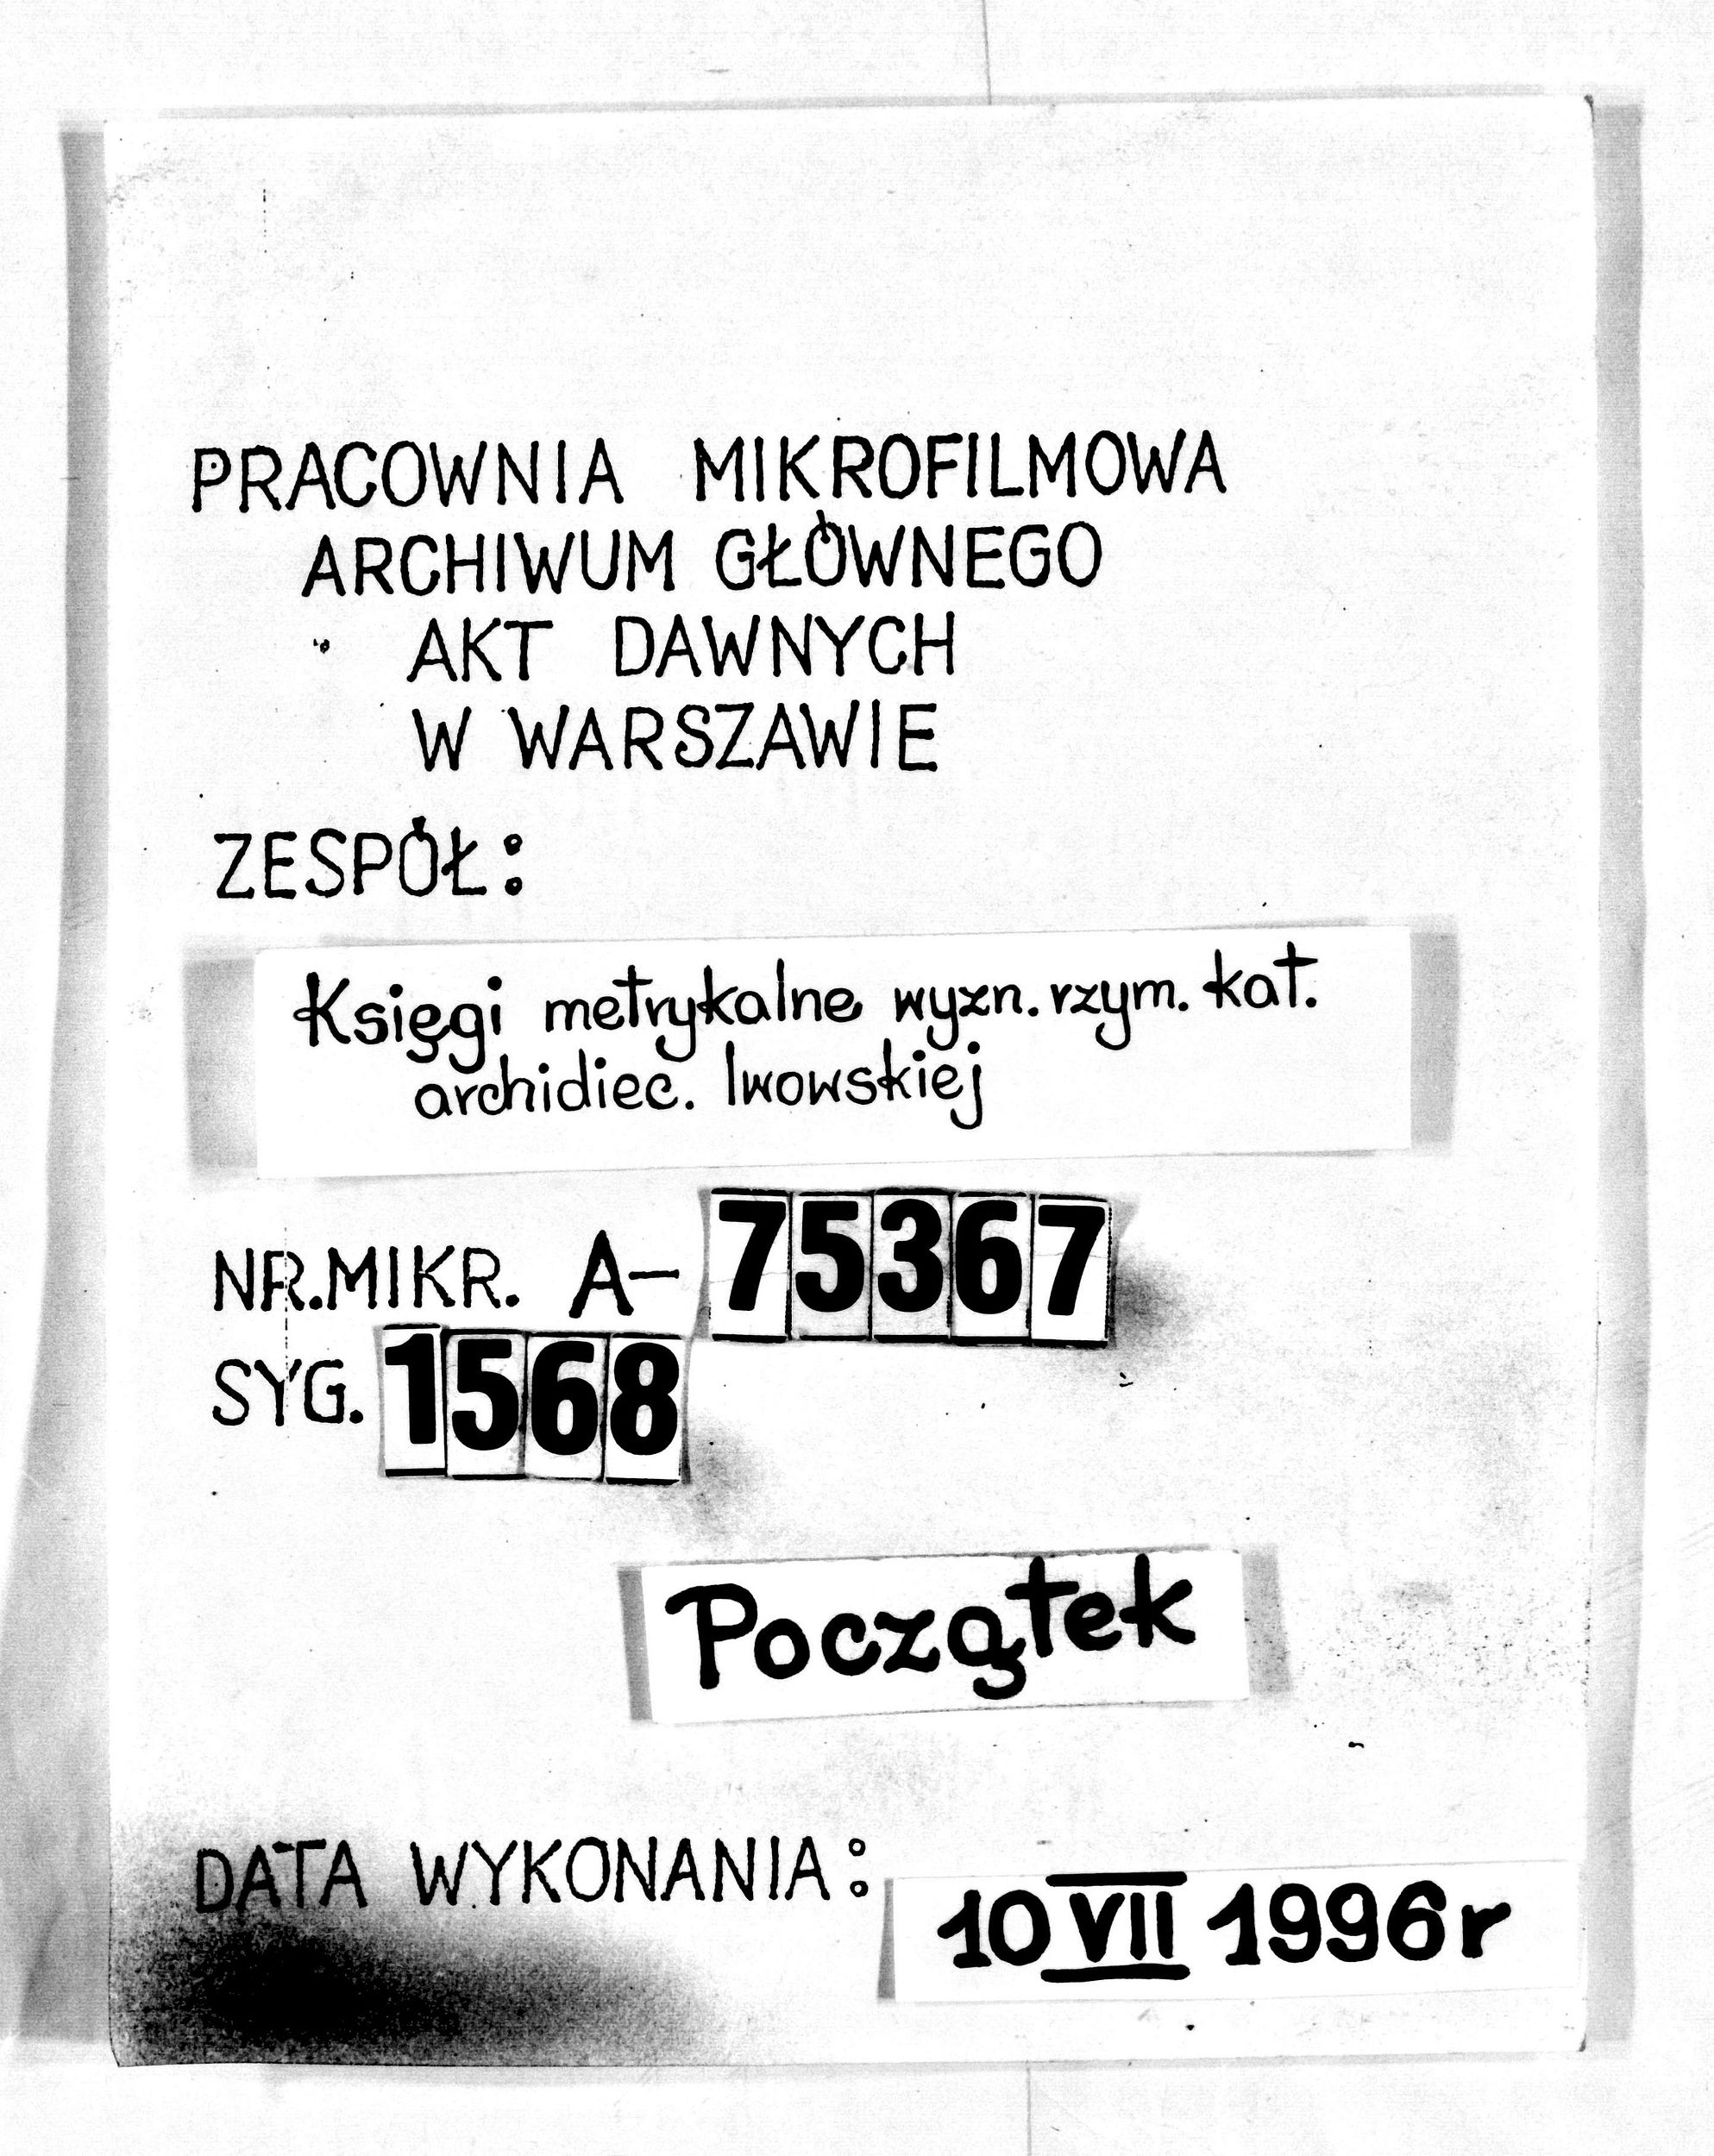 PRACOWNIA MIKROFILMOWA
ARCHIWUM GŁÓWNEGO
AKT DAWNYCH
W WARSZAWIE
ZESPÓŁ:
Księgi metrykalne wyzn. rzym. kat.
archidiec. lwowskiej
NR.MIKR. A- 75367
SYG. 1568
Początek
DATA WYKONANIA: 10 VII 1996 r